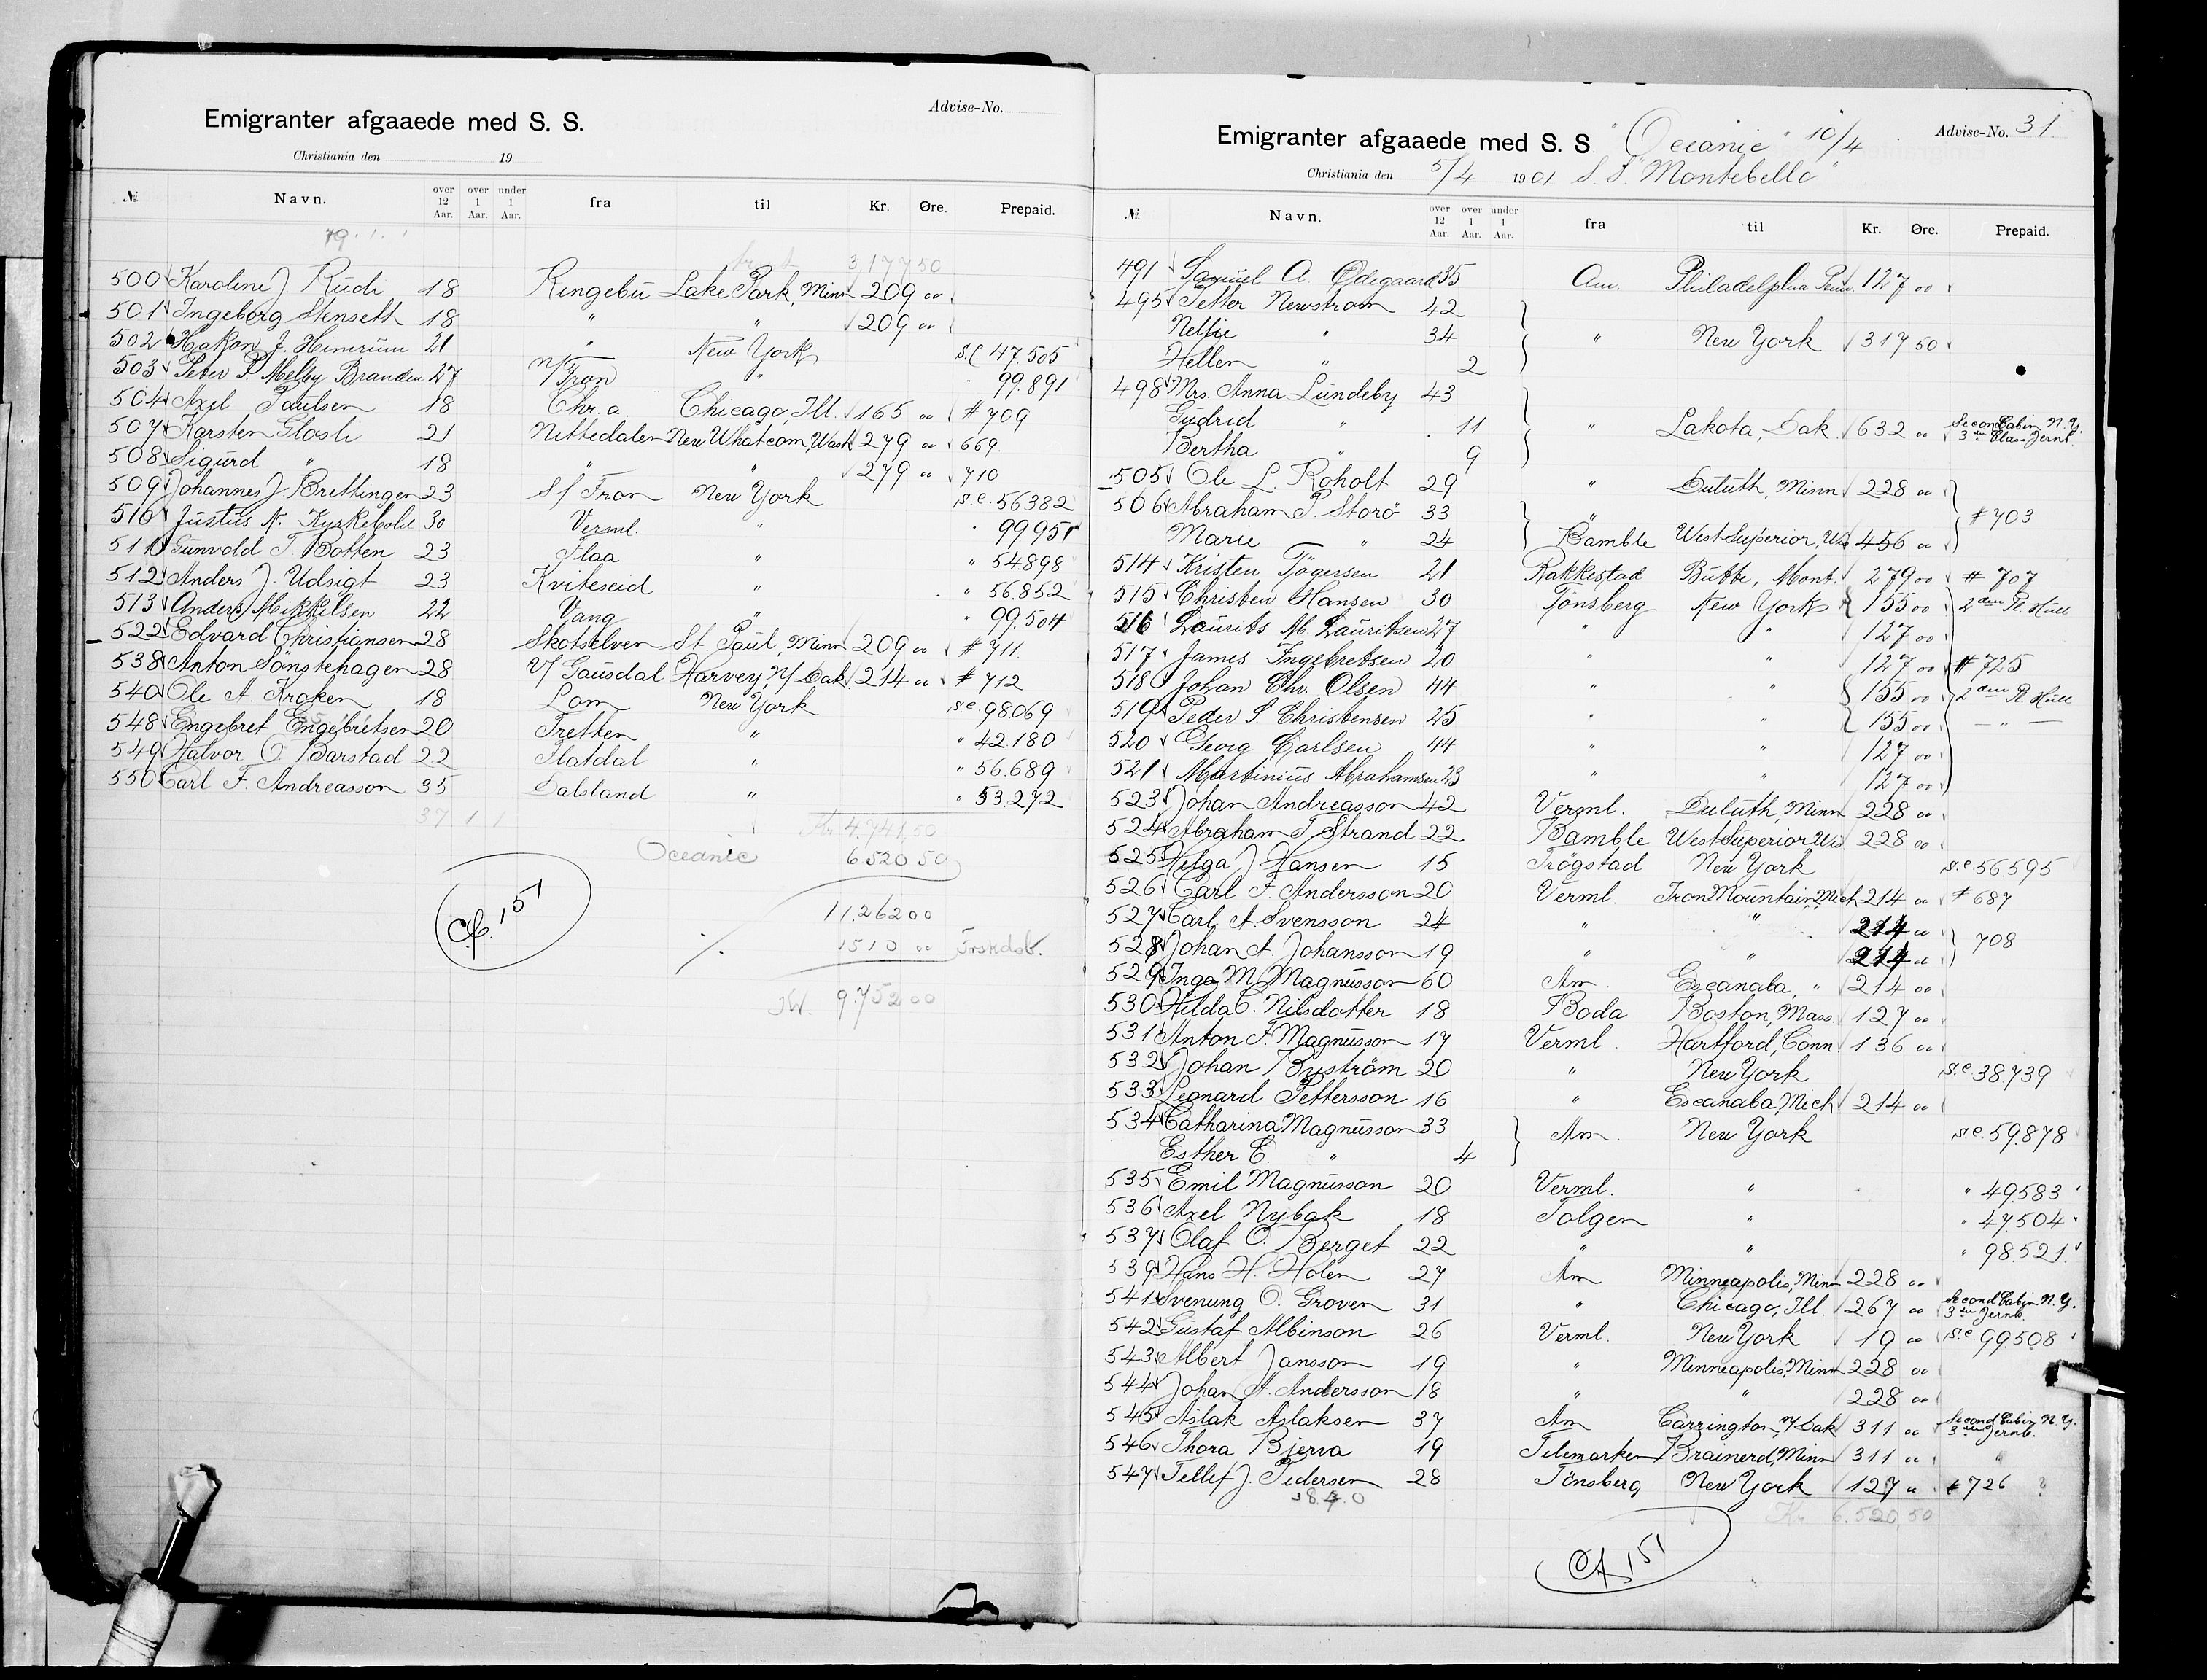 Advise-No.
Emigranter afgaaede med S. S.
Christiania den 19
№ Navn. over 12 Aar. over 1 Aar. under 1 Aar. fra til Kr. Øre. Prepaid.
3,177 50
500 Karoline J. Rudi 18 Ringebu Lake Park, Minn 209 00
501 Ingeborg Stenseth 18 " " 209 00
502 Hakon J. 21 " New York S.C. 47.505
503 Peter P. Melby Branden 27 N/Fron " 99.891
504 Axel Paulsen 18 Chr.a Chicago, Ill. 165 00 # 709
507 Karsten Glosli 21 Nittedalen New Whatcom, Wash 279 00 669
508 Sigurd " 18 " " 279 00 710
509 Johannes J. Brettingen 23 S/Fron New York S.C. 56382
510 Justus N. Kyrkebolé 30 Verml. " " 99951
511 Gunvold T. Botten 23 Flaa " " 54898
512 Anders J. Udsigt 23 Kviteseid " " 56.852
513 Anders Mikkelsen 22 Vang " " 99.504
522 Edvard Christiansen 28 Skotselven St. Paul, Minn 209 00 # 711
538 Anton Sönstehagen 28 V/Gausdal Harvey, N/Dak. 214 00 # 712
540 Ole A. Kroken 18 Lom New York S.C. 98069
548 Engebret Engebretsen 20 Tretten " " 42.180
549 Halvor O Barstad 22 Flatdal " " 56.689
550 Carl F. Andreasson 35 Dalsland " " 53.272
37 1 1 Kr. 4.741,50
Oceanic 6520 50
11.262 00
Cf. 151
%. 1510 00
9.752 00
Emigranter afgaaede med S. S. "Oceanic" 10/4 Advise-No. 31
Christiania den 5/4 1901 S. S. "Montebello"
№ Navn. over 12 Aar. over 1 Aar. under 1 Aar. fra til Kr. Øre. Prepaid.
491 Samuel A Ødegaard 35 Am. Philadelphia Penn. 127 00
495 Petter Newstrom 42
Nellie " 34 " New York 317 50
Hellen " 2
498 Mrs. Anna Lundeby 43
Gudrid " 11 " Lakota, Dak 632 00 Second Cabin N.Y. 3die Class Jernb.
Bertha " 9
505 Ole L. Roholt 29 " Duluth, Minn 228 00
506 Abraham P. Storö 33 " # 703
Marie " 24 Bamble West Superior, Wis 456 00
514 Kristen Tögersen 21 Rakkestad Butte, Mont. 279 00 # 707
515 Christen Hansen 30 Tönsberg New York 155 00 2den Pl. Hull
516 Laurits M. Lauritsen 27 " " 127 00
517 James Ingebretsen 20 " " 127 00 # 725
518 Johan Chr. Olsen 44 " " 155 00 2den Pl. Hull
519 Peder S. Christensen 25 " " 155 00 — " —
520 Georg Carlsen 44 " " 127 00
521 Martinius Abrahamsen 23 " " 127 00
523 Johan Andreasson 42 Verml. Duluth, Minn 228 00
524 Abraham T. Strand 22 Bamble West Superior Wis. 228 00
525 Helga J. Hansen 15 Trögstad New York S.C. 56.595
526 Carl F. Andersson 20 Verml. Iron Mountain, Mich 214 00 # 687
527 Carl A. Svensson 24 " " 214 00
528 Johan A. Johansson 19 " " 214 00 708
529 Inga M. Magnusson 60 Am Escanaba, " 214 00
530 Hilda C. Nilsdotter 18 Boda Boston, Mass. 127 00
531 Anton F. Magnusson 17 Verml. Hartford, Conn 136 00
532 Johan Byström 20 " New York S.C. 38.739
533 Leonard Pettersson 16 " Escanaba, Mich 214 00
534 Catharina Magnusson 33 Am. New York S.C. 59.878
Esther E. " 4
535 Emil Magnusson 20 Verml. " " 49583
536 Axel Nybak 18 Tolgen " " 47504
537 Olaf O. Berget 22 " " " 98521
539 Hans H. Holen 27 Am Minneapolis, Minn 228 00
541 Svenung O. Groven 31 " Chicago, Ill. 267 00 Second Cabin N.Y. 3die Jernb.
542 Gustaf Albinson 26 Verml. New York 19 00 S.C. 99.508
543 Albert Jansson 19 " Minneapolis, Minn 228 00
544 Johan A. Andersson 18 " " 228 00
545 Aslak Aslaksen 37 Am Carrington, N/Dak 311 00 Second Cabin N.Y. 3die Jernb.
546 Thora Bjerva 19 Telemarken Brainerd, Minn 311 00 "
547 Tellef J. Pedersen 28 Tönsberg New York 127 00 # 726
38.4.0
Kr. 6.520,50
Cf. 151